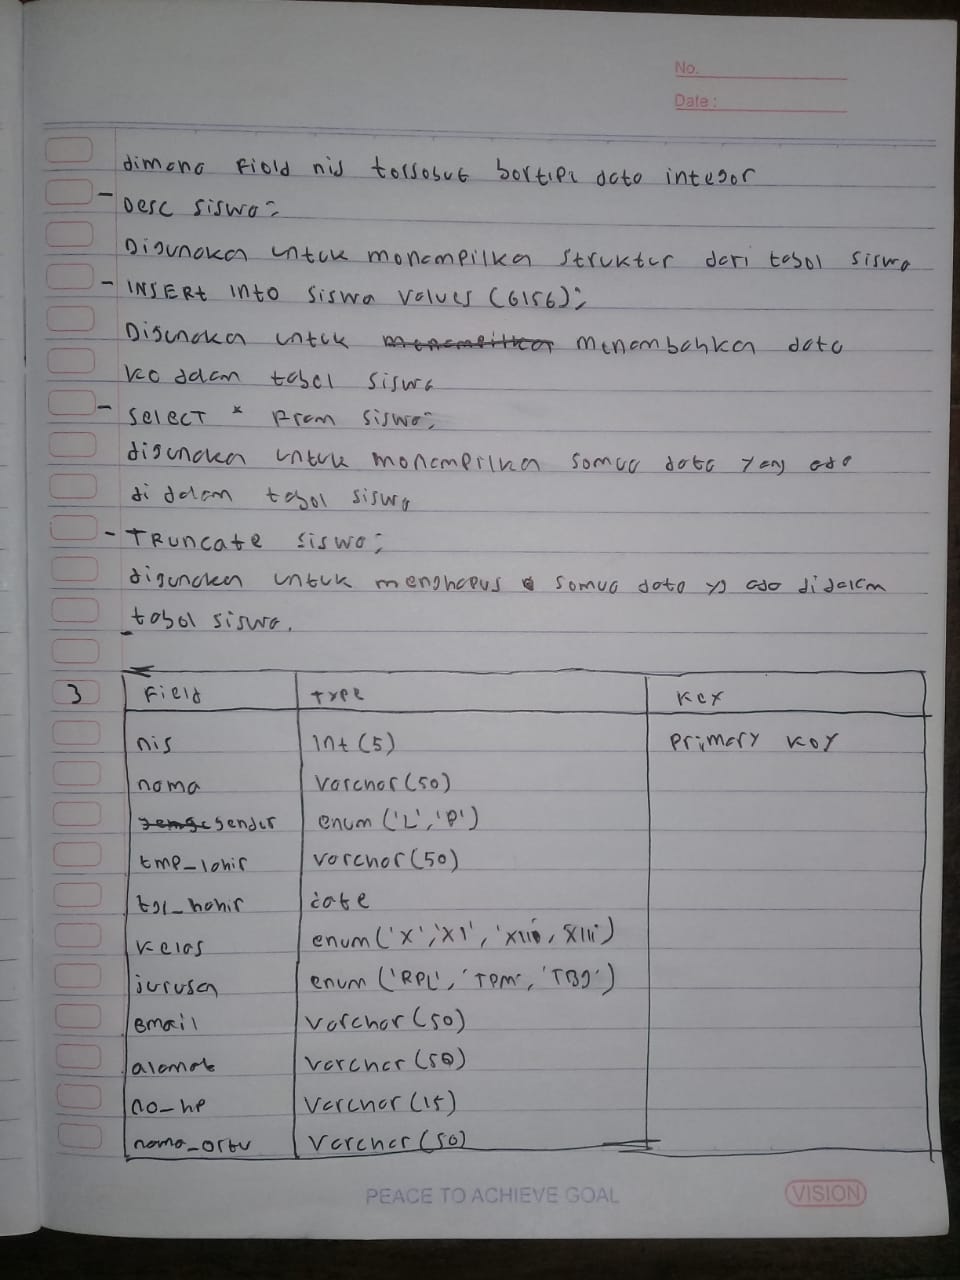 No.
Date :
dimana Field nis tersebut bertipe data integer
- Desc siswa;
Digunaka untuk menampilka struktur dari tabel siswa
- INSERt into siswa values (6156);
Digunaka untuk menambahka data
ke dalam tabel siswa
- SELECT * From siswa;
digunakan untuk menampilkan semua data yang ada
di dalam tabel siswa
- TRuncate siswa;
digunakan untuk menghapus semua data yg ada didalam
tabel siswa.
3 Field type Key
nis int (5) Primary key
nama Varchar (50)
gender enum ('L','P')
tmp_lahir varchar (50)
tgl_lahir date
kelas enum ('X','XI',
jurusan enum ('RPL',
email Varchar (50)
alamat Varchar (50)
no_hp Varchar (15)
nama_ortu Varchar (50)
PEACE TO ACHIEVE GOAL
VISION